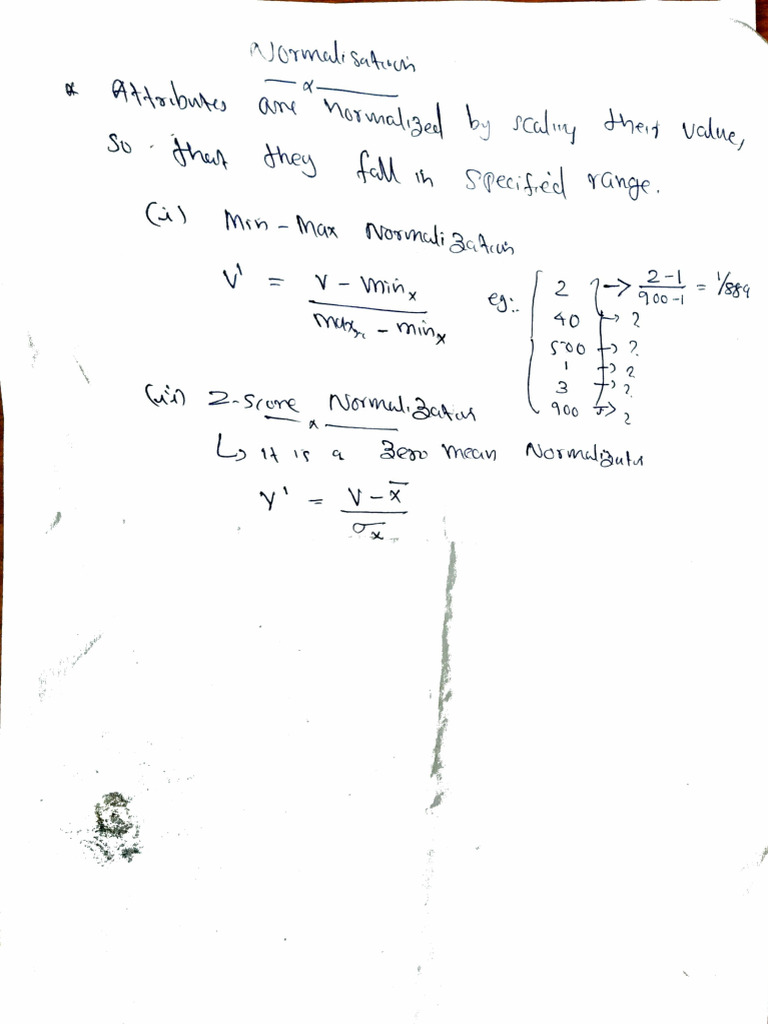 Normalisation
* Attributes are normalized by scaling their value,
so that they fall in specified range.
(i) Min - Max Normalization
V' = V - min x / max x - min x
eg:- 2 → 2-1 / 900-1 = 1/889
40 → ?
500 → ?
1 → ?
3 → ?
900 → ?
(ii) Z-Score Normalization
↳ it is a zero mean Normalizatn
V' = V - x̄ / σx